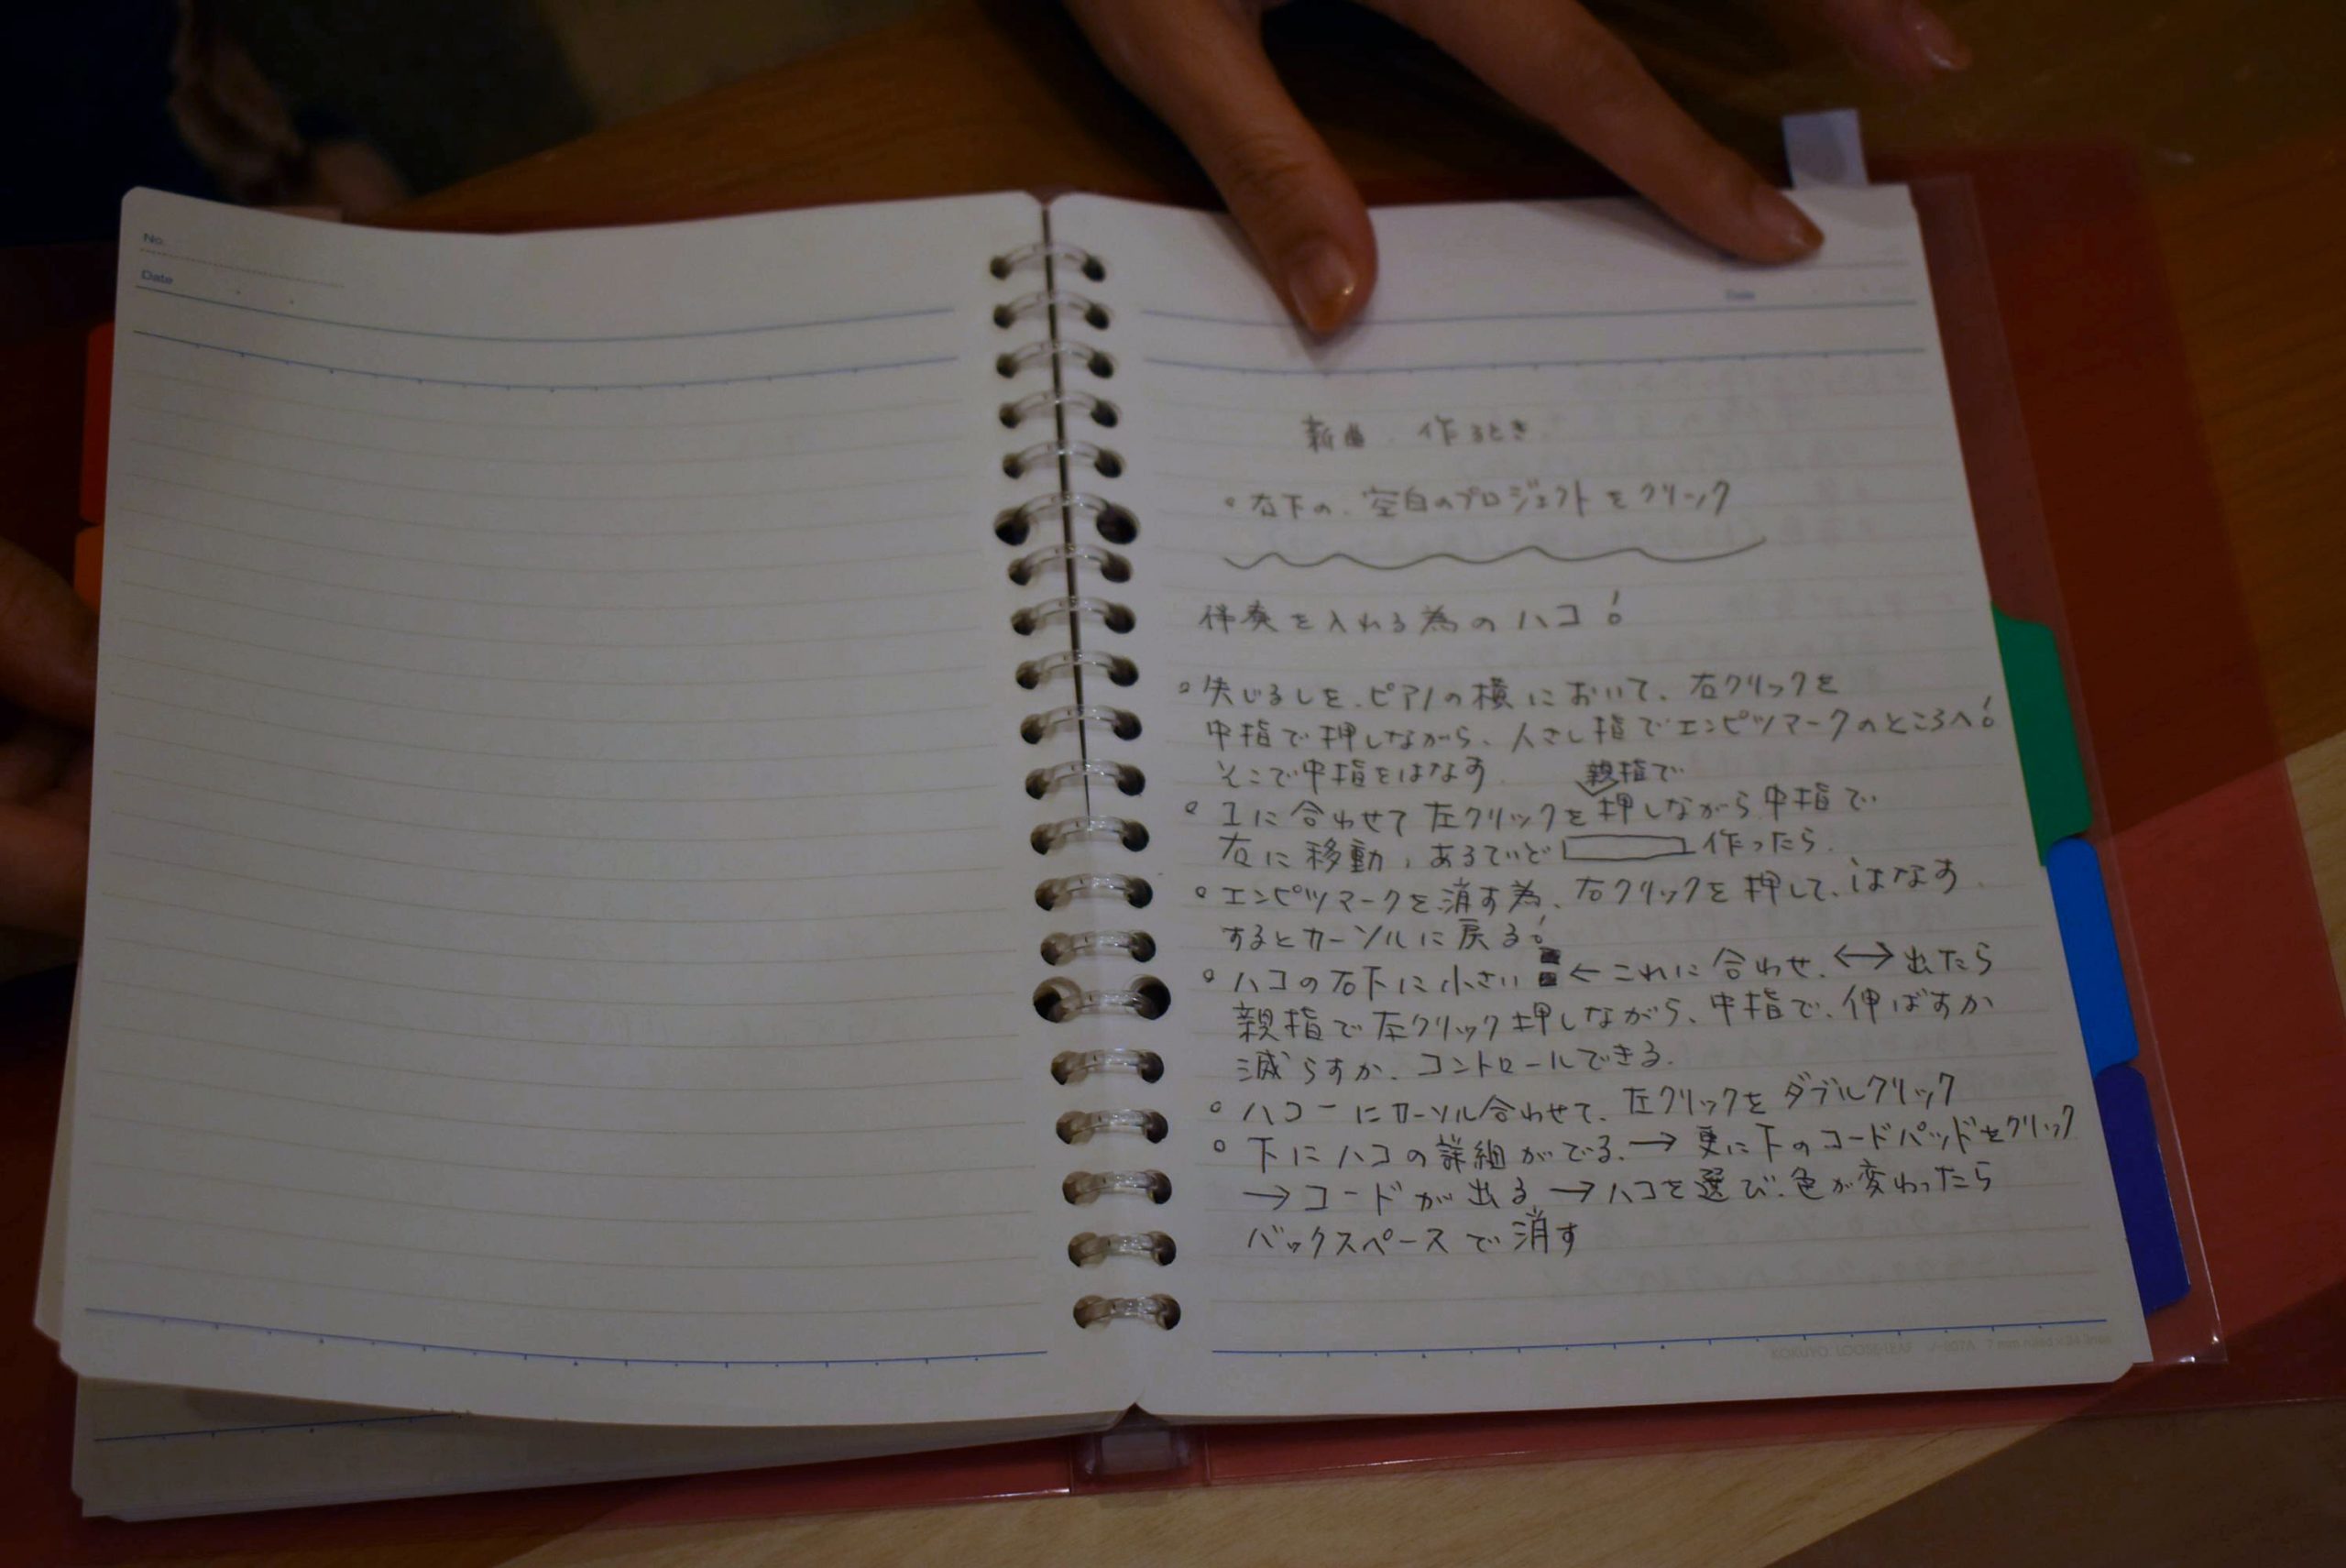 No.
Date
Date
新曲、作るとき
・右下の、空白のプロジェクトをクリック
伴奏を入れる為のハコ!
・矢じるしを、ピアノの横において、右クリックを
中指で押しながら、人さし指でエンピツマークのところへ!
そこで中指をはなす。
親指で
・1に合わせて左クリックを押しながら中指で
右に移動、あるていど 作ったら、
・エンピツマークを消す為、右クリックを押して、はなす。
するとカーソルに戻る!
・ハコの右下に小さい ←これに合わせ、↔出たら
親指で左クリック押しながら、中指で、伸ばすか
減らすか、コントロールできる。
・ハコーにカーソル合わせて、左クリックをダブルクリック
・下にハコの詳細がでる。→更に下のコードパッドをクリック
→コードが出る →ハコを選び、色が変わったら
バックスペースで消す